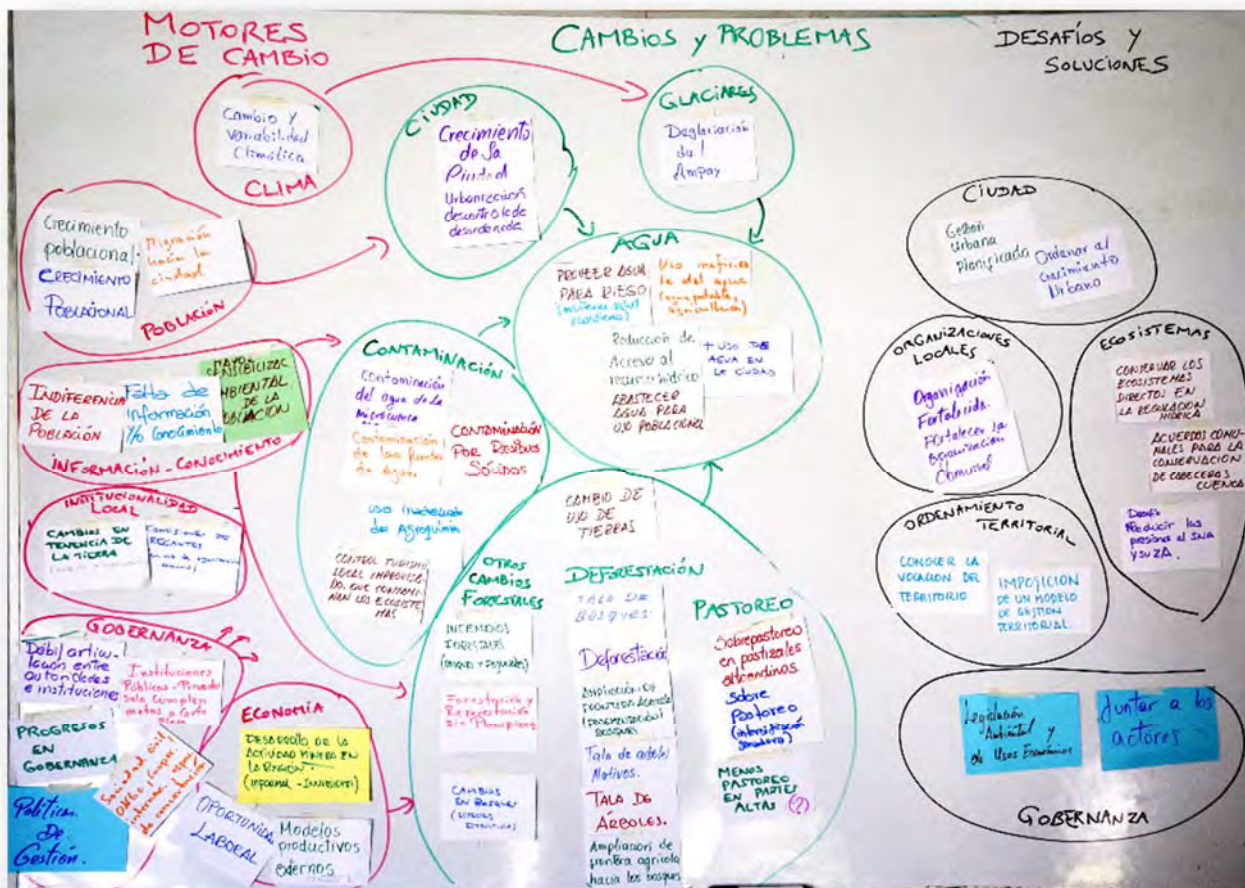 MOTORES
DE CAMBIO
Cambio y
variabilidad
Climática
CLIMA
Crecimiento
poblacional.
CRECIMIENTO
POBLACIONAL
Migración
hacia la
ciudad
POBLACIÓN
INDIFERENCIA
DE LA
POBLACIÓN
Falta de
información
y/o conocimiento
MAYOR
AMBIENTAL
DE LA
INFORMACIÓN - CONOCIMIENTO
INSTITUCIONALIDAD
LOCAL
CAMBIOS EN
TENENCIA DE
LA TIERRA
COMISIONES DE
REGANTES
GOBERNANZA
Débil articu-
lación entre
autoridades
e instituciones
Instituciones
Públicas - Privadas
solo cumplen
metas a corto
PROGRESOS
EN
GOBERNANZA
Sociedad civil
Políticas
De
Gestión.
ECONOMÍA
DESARROLLO DE LA
ACTIVIDAD MINERA EN
LA REGIÓN.
OPORTUNIDAD
LABORAL
Modelos
productivos
externos
CAMBIOS y PROBLEMAS
CIUDAD
Crecimiento
de la
Urbanización
GLACIARES
Deglaciación
del
Ampay
AGUA
PROVEER AGUA
PARA RIEGO
Uso
del agua
(agua potable,
agricultura)
Reducción de
Acceso al
recurso hídrico
ABASTECER
AGUA PARA
USO POBLACIONAL
+ USO DE
AGUA EN
CONTAMINACIÓN
Contaminación
del agua de la
Microcuenca
Contaminación
de las fuentes
de agua.
CONTAMINACIÓN
POR RESIDUOS
SÓLIDOS
uso inadecuado
de
CONTROL TURISMO
LOCAL IMPROVISA-
DO, QUE CONTAMI-
NAN LOS ECOSISTE-
MAS
CAMBIO DE
USO DE
TIERRAS
OTROS
CAMBIOS
FORESTALES
INCENDIOS
FORESTALES
Forestación y
Reforestación
sin
CAMBIOS
EN BOSQUES
DEFORESTACIÓN
TALA DE
BOSQUES
Deforestación
AMPLIACIÓN DE
BOSQUES
Tala de árboles
Nativos.
TALA DE
ÁRBOLES.
Ampliación de
frontera agrícola
hacia los bosques
PASTOREO
Sobrepastoreo
en pastizales
altoandinos
Sobre
Pastoreo
MENOS
PASTOREO
EN PARTES
ALTAS (?)
DESAFÍOS Y
SOLUCIONES
CIUDAD
Gestión
Urbana
Planificada
Ordenar el
Crecimiento
Urbano
ORGANIZACIONES
LOCALES
Organización
Fortalecida.
Fortalecer la
Organización
Comunal
ECOSISTEMAS
CONSERVAR LOS
ECOSISTEMAS
DIRECTOS EN
LA REGULACIÓN
HÍDRICA
ACUERDOS COMU-
NALES PARA LA
CONSERVACIÓN
DE CABECERAS
CUENCA
Desafío
Reducir las
presiones al SNA
y su ZA.
ORDENAMIENTO
TERRITORIAL
CONOCER LA
VOCACIÓN DEL
TERRITORIO
IMPOSICIÓN
DE UN MODELO
DE GESTIÓN
TERRITORIAL
Legislación
Ambiental y
de Usos Económicos
Juntar a los
actores
GOBERNANZA